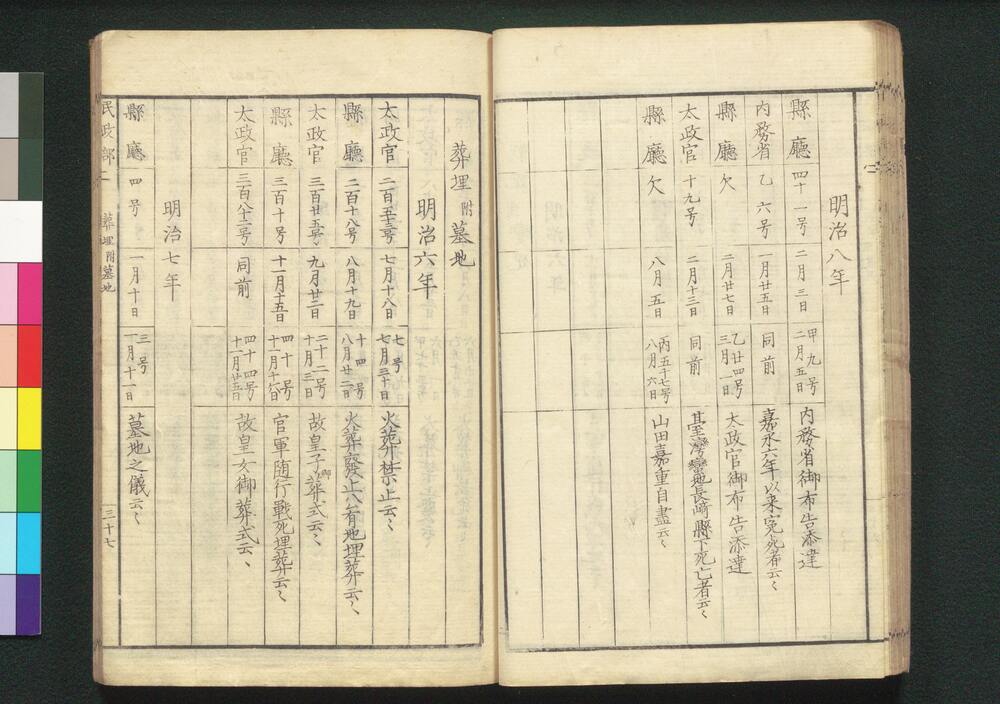 明治八年
縣廳 四十一号 二月三日 甲九号 二月五日 内務省御布告添達
内務省 乙六号 一月廿五日 同前 嘉永六年以来冤死者云〻
縣廳 欠 二月廿七日 乙廿四号 三月一日 太政官御布告添達
太政官 十九号 二月十三日 同前 臺灣蠻地長崎縣下死亡者云〻
縣廳 欠 八月五日 丙五十七号 八月六日 山田嘉重自盡云〻
葬埋附墓地
明治六年
太政官 二百五十三号 七月十八日 七号 七月三十日 火葬禁止云〻
縣廳 二百十八号 八月十九日 十四号 八月廿二日 火葬廢止八有地埋葬云〻
太政官 三百廿五号 九月廿二日 二十二号 十月三日 故皇子御葬式云〻
縣廳 三百十号 十一月十五日 四十号 十一月十八日 官軍随行戰死埋葬云〻
太政官 三百八十二号 同前 四十四号 十一月廿五日 故皇女御葬式云〻
明治七年
縣廳 四号 一月十日 三号 一月十一日 墓地之儀云〻
民政部二 葬埋附墓地 三十七